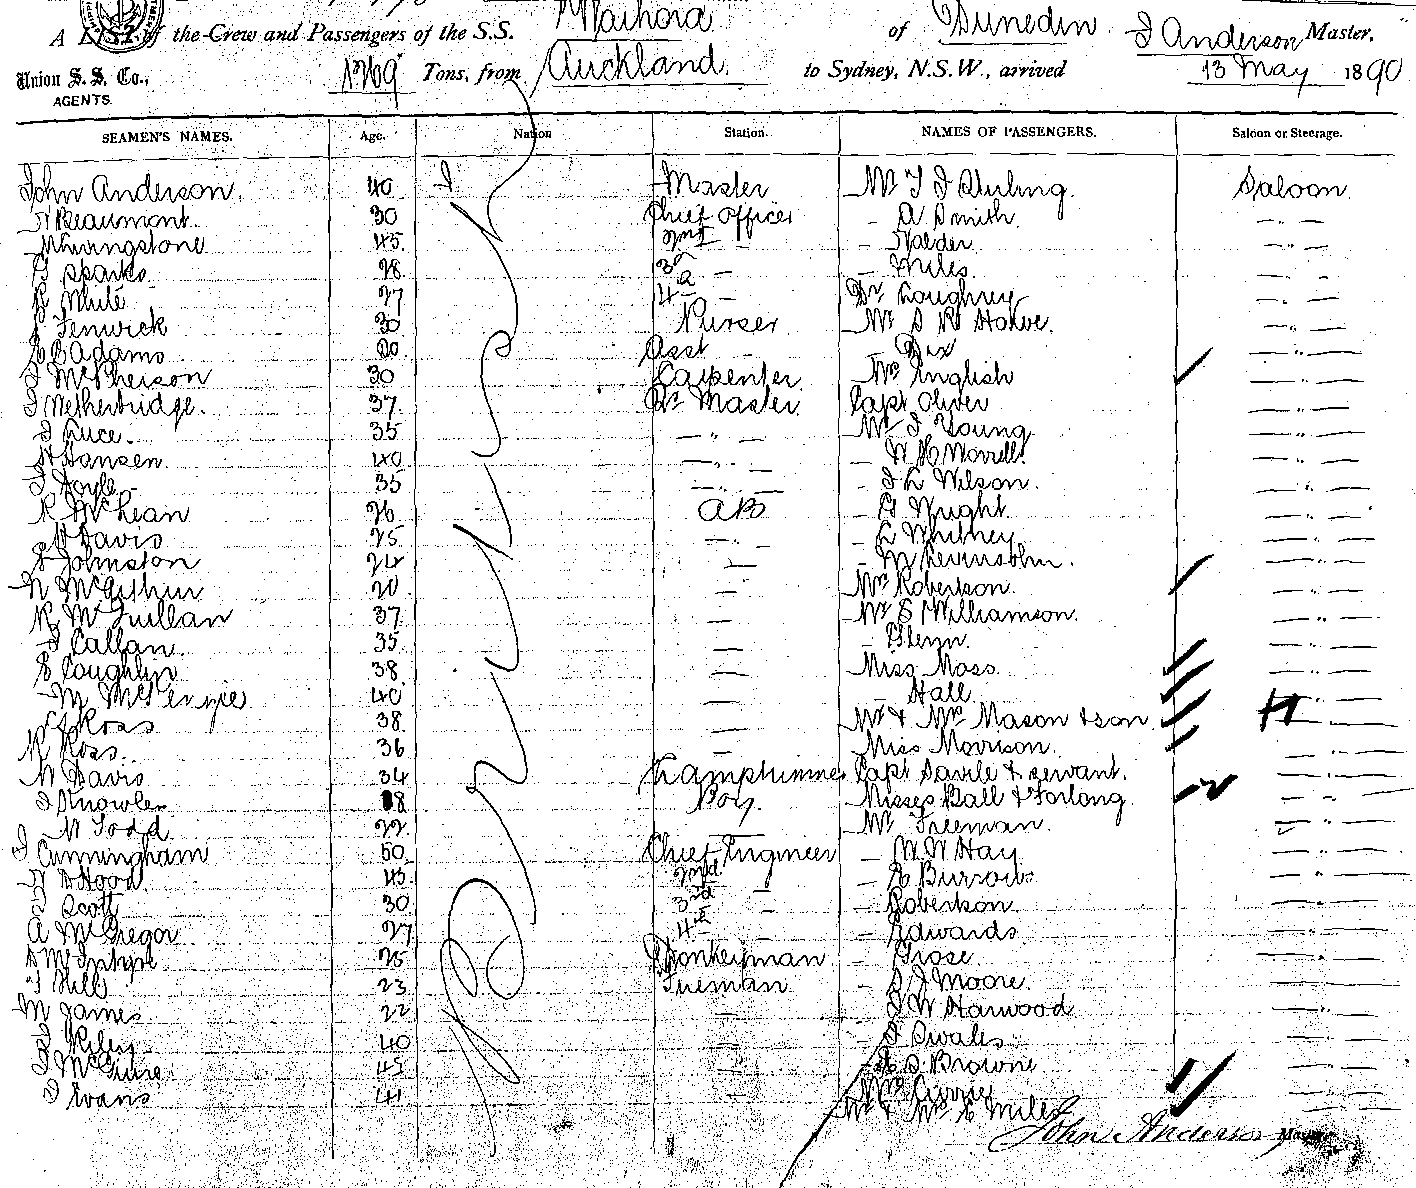 A LIST of the Crew and Passengers of the S.S. Waihora of Dunedin J Anderson Master,
Union S. S. Co., 1269 Tons, from Auckland to Sydney, N.S.W., arrived 13 May 1890
AGENTS.
SEAMEN'S NAMES. Age. Nation Station. NAMES OF PASSENGERS. Saloon or Steerage.
John Anderson 40 Master Mr T J Stirling Saloon
Beaumont 30 Chief Officer — A Smith — " —
Livingstone 45 2nd " — " —
Sparks 28 3rd — — Miles — " —
White 27 4th — Dr Loughrey — " —
J Fenwick 30 Purser Mr S Howe — " —
Adams 20 Asst — Dix — " —
J McPherson 30 Carpenter Mrs English — " —
J Wetherbridge 37 Qr Master Capt Oliver — " —
J Luce 35 — " — Mr J Young — " —
H Hansen 40 — " — — W Morrell — " —
Doyle 35 — " — — J L Wilson — " —
R McLean 26 AB — G Wright — " —
Davis 25 — " — — L Whitney — " —
S Johnston 24 — — — " —
N McArthur 20 — Mrs Robertson — " —
R McQuillan 37 — Mr S Williamson — " —
J Callan 35 — — Glenn — " —
S Coughlin 38 — Miss Moss — " —
M McKenzie 40 — — Hall — " —
Ross 38 — Mr & Mrs Mason & son — " —
R Ross 36 — Miss Morrison — " —
W Davis 34 Lamptrimmer Capt Savile & servant — " —
J Knowles 18 Boy Misses Ball & Forlong — " —
W Todd 22 — Mr Freeman — " —
J Cunningham 50 Chief Engineer — W W Hay — " —
Hood 45 2nd — — A Burrows — " —
Scott 30 3rd — — Robertson — " —
A McGregor 27 4th — — Edwards — " —
McIntyre 25 Donkeyman — Grose — " —
T Hill 23 Fireman — S J Moore — " —
M James 22 — — J W Harwood — " —
Riley 40 — — J Swales — " —
J McGuire 45 — Browne — " —
J Evans 41 — Mrs Currie — " —
Mr & Mrs Miles
British
John Anderson Master